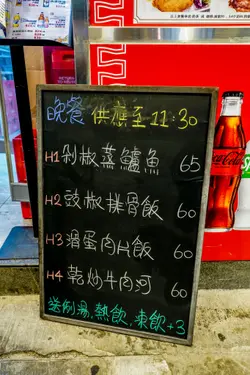 晚餐 供應至 11:30
H1 剁椒蒸鱸魚 65
H2 豉椒排骨飯 60
H3 滑蛋肉片飯 60
H4 乾炒牛肉河 60
送例湯,熱飲,凍飲+3
Coca-Cola